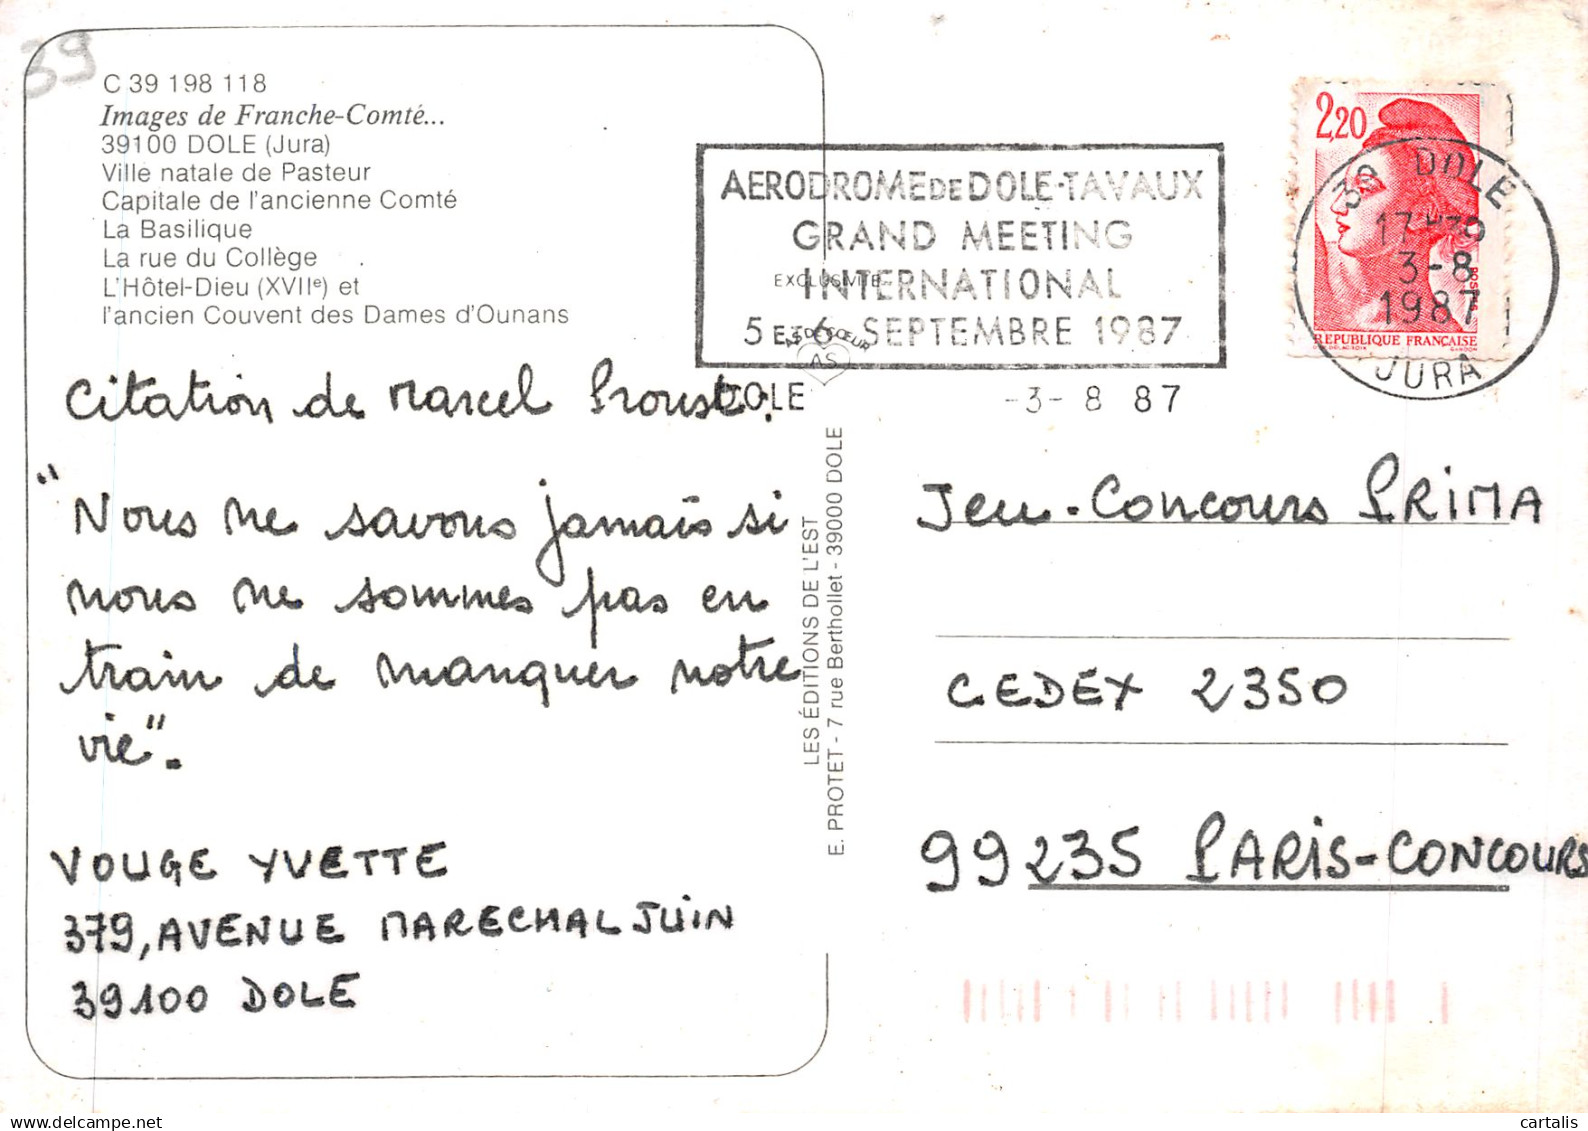 39
C 39 198 118
Images de Franche-Comté...
39100 DOLE (Jura)
Ville natale de Pasteur
Capitale de l'ancienne Comté
La Basilique
La rue du Collège
L'Hôtel-Dieu (XVIIe) et
l'ancien Couvent des Dames d'Ounans
Citation de Marcel Proust:
"Nous ne savons jamais si
nous ne sommes pas en
train de manquer notre
vie".
VOUGE YVETTE
379, AVENUE MARECHAL JUIN
39100 DOLE
EXCLUSIVITÉ
AS DE CŒUR
AS
LES ÉDITIONS DE L'EST
E. PROTET - 7 rue Berthollet - 39000 DOLE
AERODROME DE DOLE-TAVAUX
GRAND MEETING
INTERNATIONAL
5 ET 6 SEPTEMBRE 1987
DOLE -3- 8 87
2,20
POSTES
REPUBLIQUE FRANÇAISE
39 DOLE
3-8
1987
JURA
Jeu-Concours PRIMA
CEDEX 2350
99235 PARIS-CONCOURS
cartalis.com